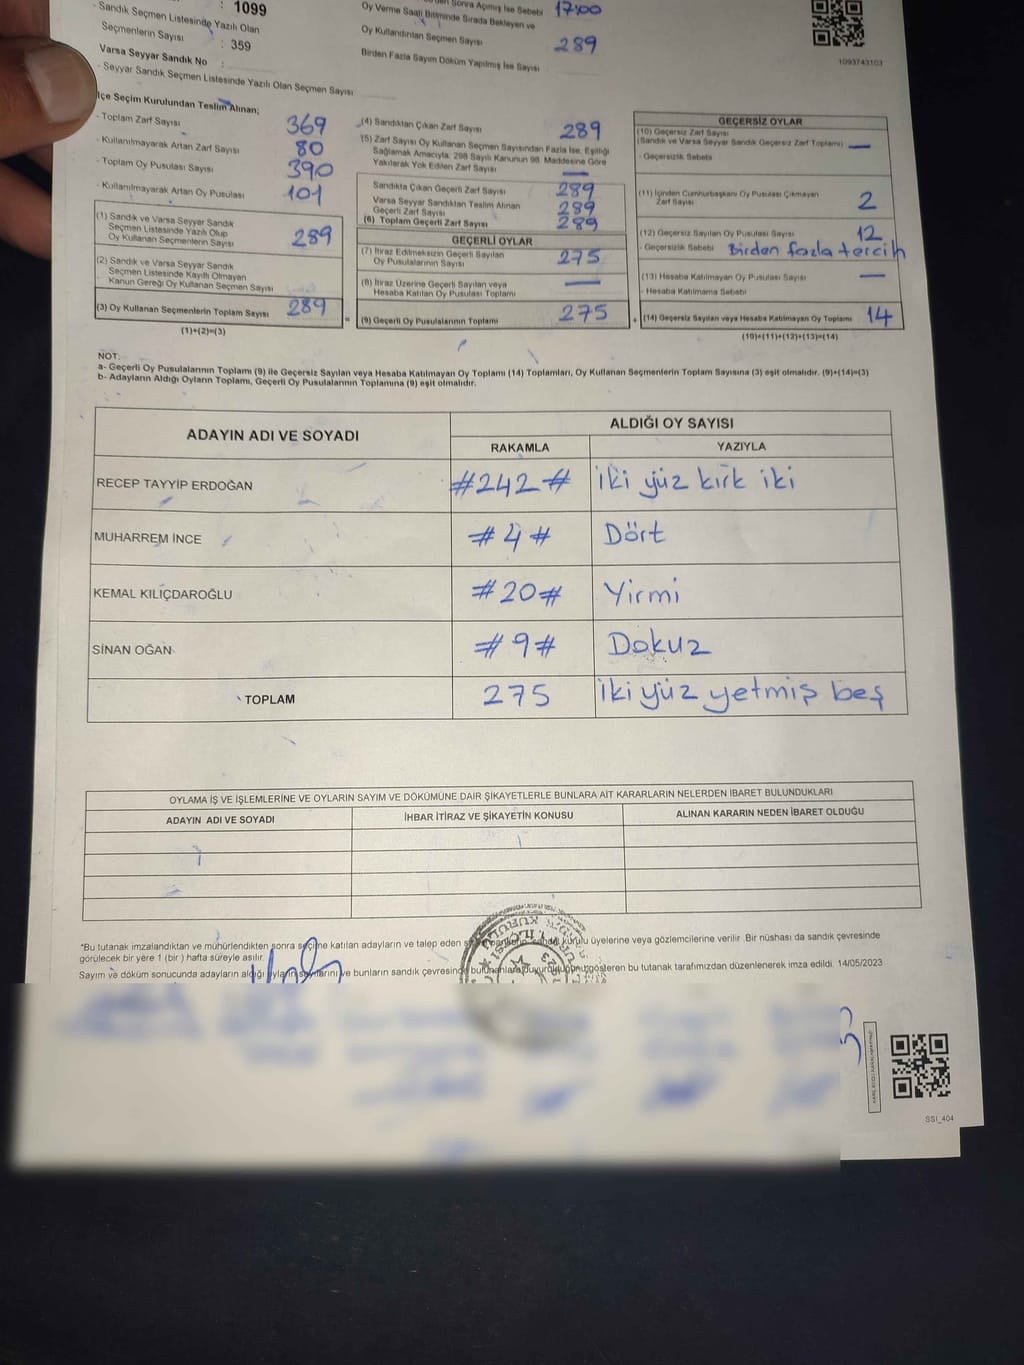 : 1099
- Sandık Seçmen Listesinde Yazılı Olan
Seçmenlerin Sayısı : 359
Varsa Seyyar Sandık No :
- Seyyar Sandık Seçmen Listesinde Yazılı Olan Seçmen Sayısı
Sonra Açılmış İse Sebebi 17:00
Oy Verme Saati Bitiminde Sırada Bekleyen ve
Oy Kullandırılan Seçmen Sayısı 289
Birden Fazla Sayım Döküm Yapılmış İse Sayısı
1093743103
İlçe Seçim Kurulundan Teslim Alınan;
- Toplam Zarf Sayısı 369
- Kullanılmayarak Artan Zarf Sayısı 80
- Toplam Oy Pusulası Sayısı 390
- Kullanılmayarak Artan Oy Pusulası 101
(1) Sandık ve Varsa Seyyar Sandık
Seçmen Listesinde Yazılı Olup
Oy Kullanan Seçmenlerin Sayısı 289
(2) Sandık ve Varsa Seyyar Sandık
Seçmen Listesinde Kayıtlı Olmayan
Kanun Gereği Oy Kullanan Seçmen Sayısı
(3) Oy Kullanan Seçmenlerin Toplam Sayısı 289
(1)+(2)=(3)
(4) Sandıktan Çıkan Zarf Sayısı 289
(5) Zarf Sayısı Oy Kullanan Seçmen Sayısından Fazla İse, Eşitliği
Sağlamak Amacıyla, 298 Sayılı Kanunun 98. Maddesine Göre
Yakılarak Yok Edilen Zarf Sayısı —
Sandıkta Çıkan Geçerli Zarf Sayısı 289
Varsa Seyyar Sandıktan Teslim Alınan
Geçerli Zarf Sayısı 289
(6) Toplam Geçerli Zarf Sayısı 289
GEÇERLİ OYLAR
(7) İtiraz Edilmeksizin Geçerli Sayılan
Oy Pusulalarının Sayısı 275
(8) İtiraz Üzerine Geçerli Sayılan veya
Hesaba Katılan Oy Pusulası Toplamı —
= (9) Geçerli Oy Pusulalarının Toplamı 275
GEÇERSİZ OYLAR
(10) Geçersiz Zarf Sayısı
(Sandık ve Varsa Seyyar Sandık Geçersiz Zarf Toplamı) —
- Geçersizlik Sebebi
(11) İçinden Cumhurbaşkanı Oy Pusulası Çıkmayan
Zarf Sayısı 2
(12) Geçersiz Sayılan Oy Pusulası Sayısı 12
- Geçersizlik Sebebi Birden fazla tercih
(13) Hesaba Katılmayan Oy Pusulası Sayısı —
- Hesaba Katılmama Sebebi
+ (14) Geçersiz Sayılan veya Hesaba Katılmayan Oy Toplamı 14
(10)+(11)+(12)+(13)=(14)
NOT:
a- Geçerli Oy Pusulalarının Toplamı (9) ile Geçersiz Sayılan veya Hesaba Katılmayan Oy Toplamı (14) Toplamları, Oy Kullanan Seçmenlerin Toplam Sayısına (3) eşit olmalıdır. (9)+(14)=(3)
b- Adayların Aldığı Oyların Toplamı, Geçerli Oy Pusulalarının Toplamına (9) eşit olmalıdır.
ADAYIN ADI VE SOYADI
ALDIĞI OY SAYISI
RAKAMLA YAZIYLA
RECEP TAYYİP ERDOĞAN #242# İki yüz kırk iki
MUHARREM İNCE #4# Dört
KEMAL KILIÇDAROĞLU #20# Yirmi
SİNAN OĞAN #9# Dokuz
TOPLAM 275 İki yüz yetmiş beş
OYLAMA İŞ VE İŞLEMLERİNE VE OYLARIN SAYIM VE DÖKÜMÜNE DAİR ŞİKAYETLERLE BUNLARA AİT KARARLARIN NELERDEN İBARET BULUNDUKLARI
ADAYIN ADI VE SOYADI İHBAR İTİRAZ VE ŞİKAYETİN KONUSU ALINAN KARARIN NEDEN İBARET OLDUĞU
*Bu tutanak imzalandıktan ve mühürlendikten sonra seçime katılan adayların ve talep eden sandık kurulu üyelerine veya gözlemcilerine verilir. Bir nüshası da sandık çevresinde
görülecek bir yere 1 (bir) hafta süreyle asılır.
Sayım ve döküm sonucunda adayların aldığı oyların sayılarını ve bunların sandık çevresinde bulunanlara duyurulduğunu gösteren bu tutanak tarafımızdan düzenlenerek imza edildi. 14/05/2023
SSI_404